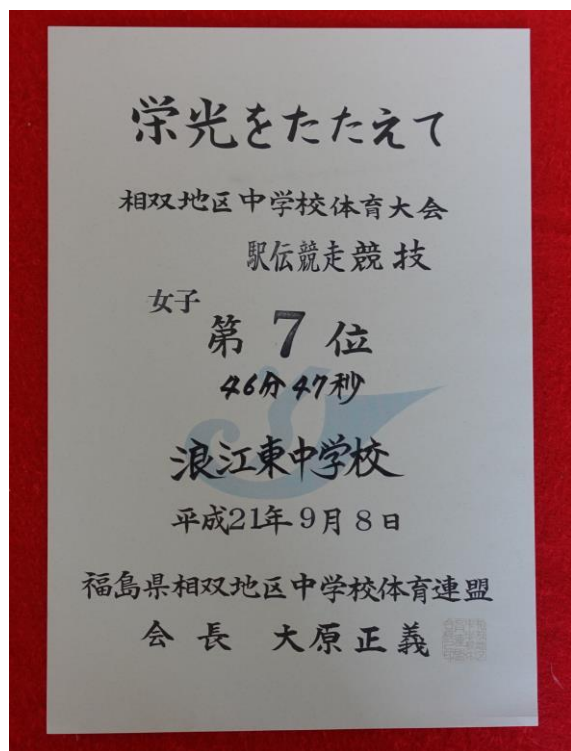 栄光をたたえて
相双地区中学校体育大会
駅伝競走競技
女子
第7位
46分47秒
浪江東中学校
平成21年9月8日
福島県相双地区中学校体育連盟
会長 大原正義